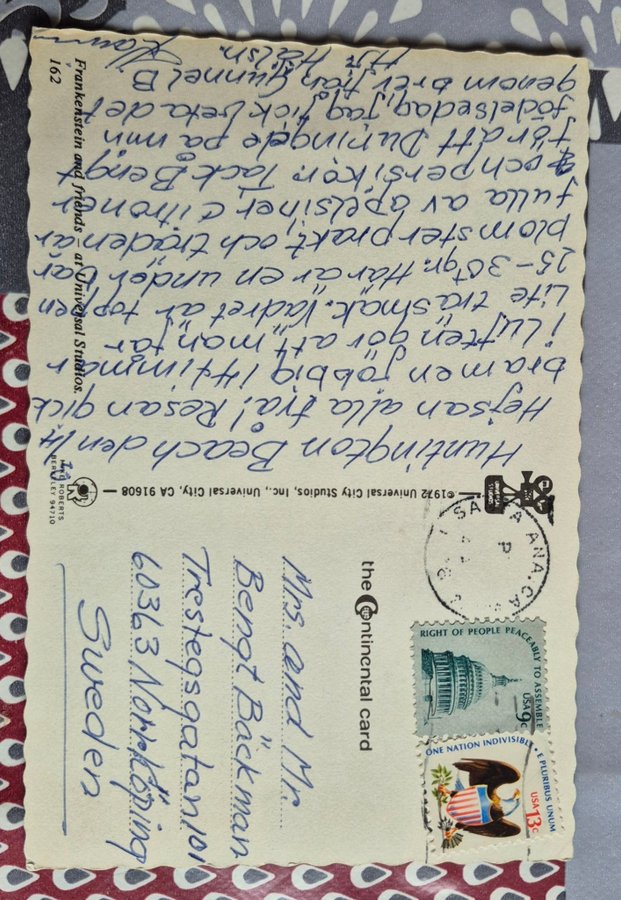 Huntington Beach den 14/
Hejsan alla Resan gick
bra men jobbig 14 timmar
i luften gör att man får
lite träsmak. Vädret är toppen
25-30 gr. Här är en underbar
blomsterprakt och träden är
fulla av apelsiner citroner
och persikor. Tack Bengt
för att Du ringde på min
födelsedag, jag fick veta det
genom brev från Gunnel B.
Hälsn.
Frankenstein and friends – at Universal Studios.
162
©1972 Universal City Studios, Inc., Universal City, CA 91608
MIKE ROBERTS
BERKELEY 94710
the Continental card
ANA, CA
RIGHT OF PEOPLE PEACEABLY TO ASSEMBLE
USA 9c
ONE NATION INDIVISIBLE • E PLURIBUS UNUM
USA 13c
Mrs. and Mr.
Bengt Bäckman
Trestegsgatan 101
60363 Norrköping
Sweden